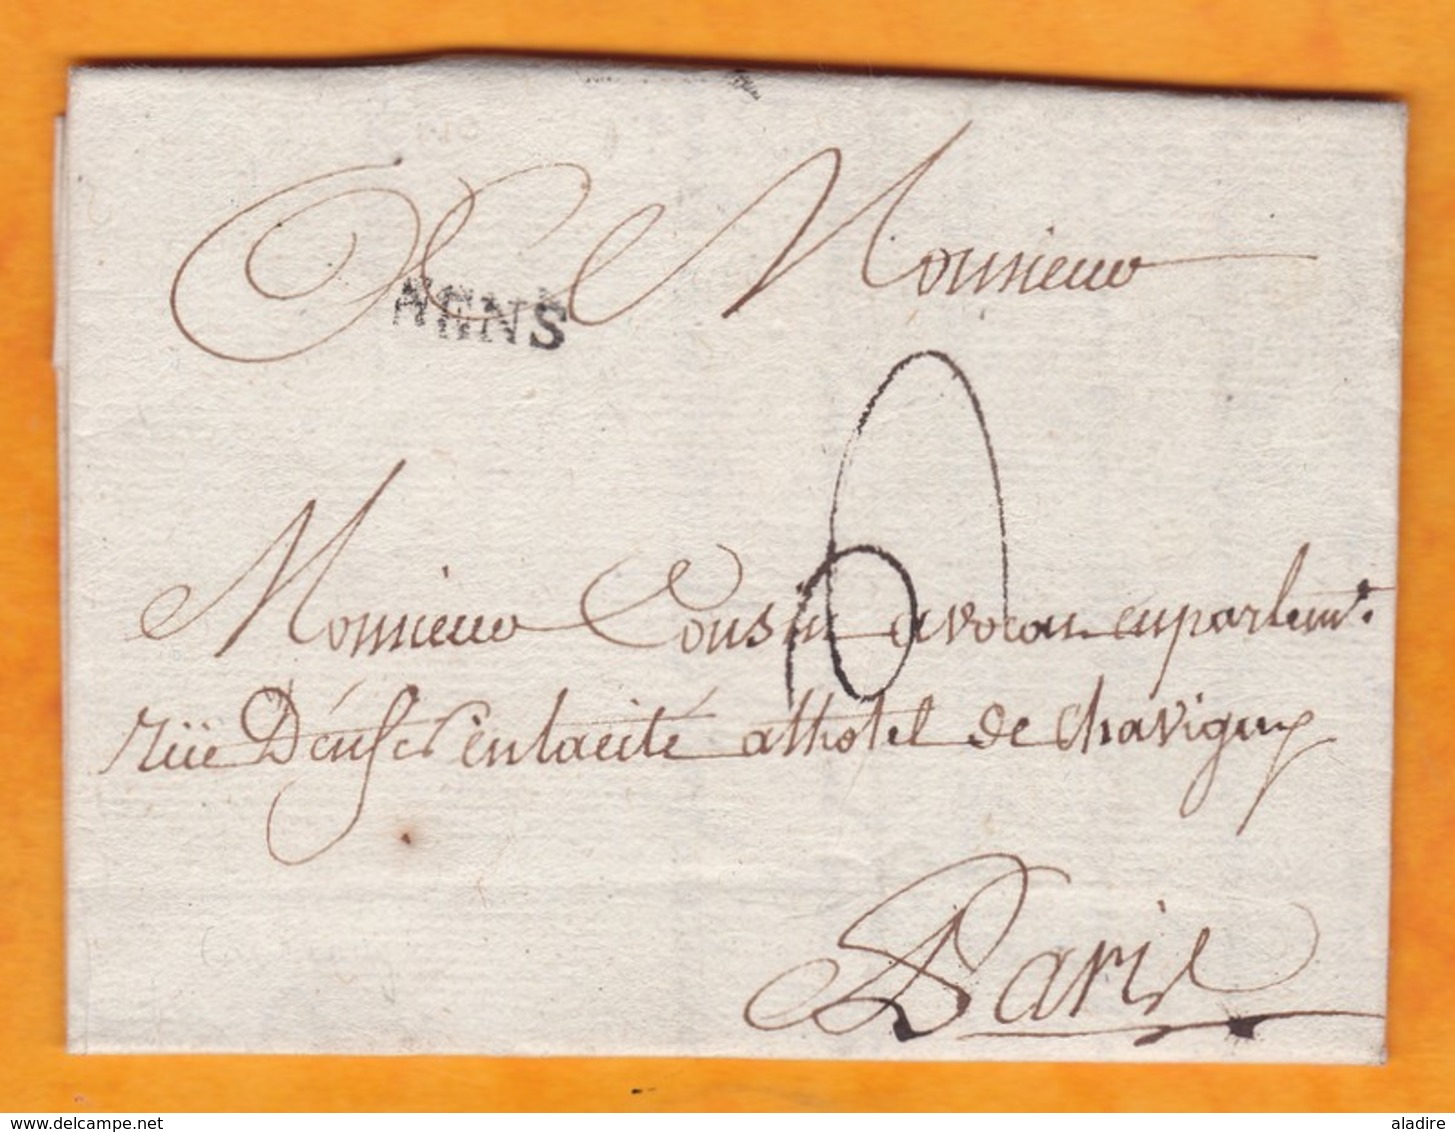 A Monsieur
AENS
Monsieur Cousin avocat en parlemt.
rüe D'enfer en la cité a lhotel de Chavigny
Paris
delcampe.net
aladire